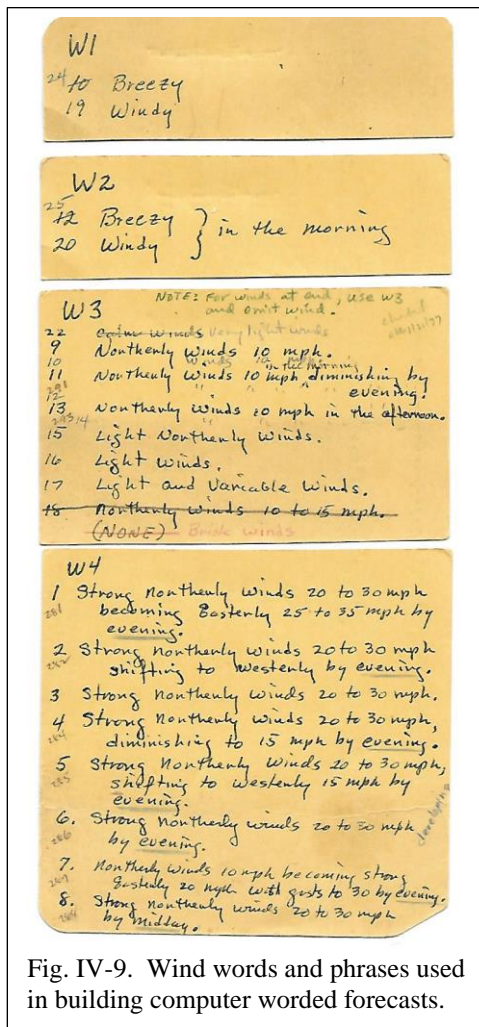 W1
24 10 Breezy
19 Windy
W2
25
12 Breezy } in the morning
20 Windy
NOTE: For winds at end, use W3
and omit wind.
W3
22 Calm winds very light winds
9 Northerly winds 10 mph.
10 in the morning
11 Northerly winds 10 mph diminishing by
12 evening.
13 Northerly winds 10 mph in the afternoon.
14
15 Light Northerly winds.
16 Light winds.
17 Light and Variable winds.
18 Northerly winds 10 to 15 mph.
(NONE) Brisk winds
W4
1 Strong Northerly winds 20 to 30 mph
281 becoming Easterly 25 to 35 mph by
evening.
2 Strong Northerly winds 20 to 30 mph
282 shifting to westerly by evening.
3 Strong Northerly winds 20 to 30 mph.
4 Strong Northerly winds 20 to 30 mph,
284 diminishing to 15 mph by evening.
5 Strong Northerly winds 20 to 30 mph,
285 shifting to westerly 15 mph by
evening.
6. Strong Northerly winds 20 to 30 mph developing
286 by evening.
7. Northerly winds 10 mph becoming strong
287 Easterly 20 mph with gusts to 30 by evening.
8. Strong northerly winds 20 to 30 mph
288 by midday.
Fig. IV-9. Wind words and phrases used
in building computer worded forecasts.